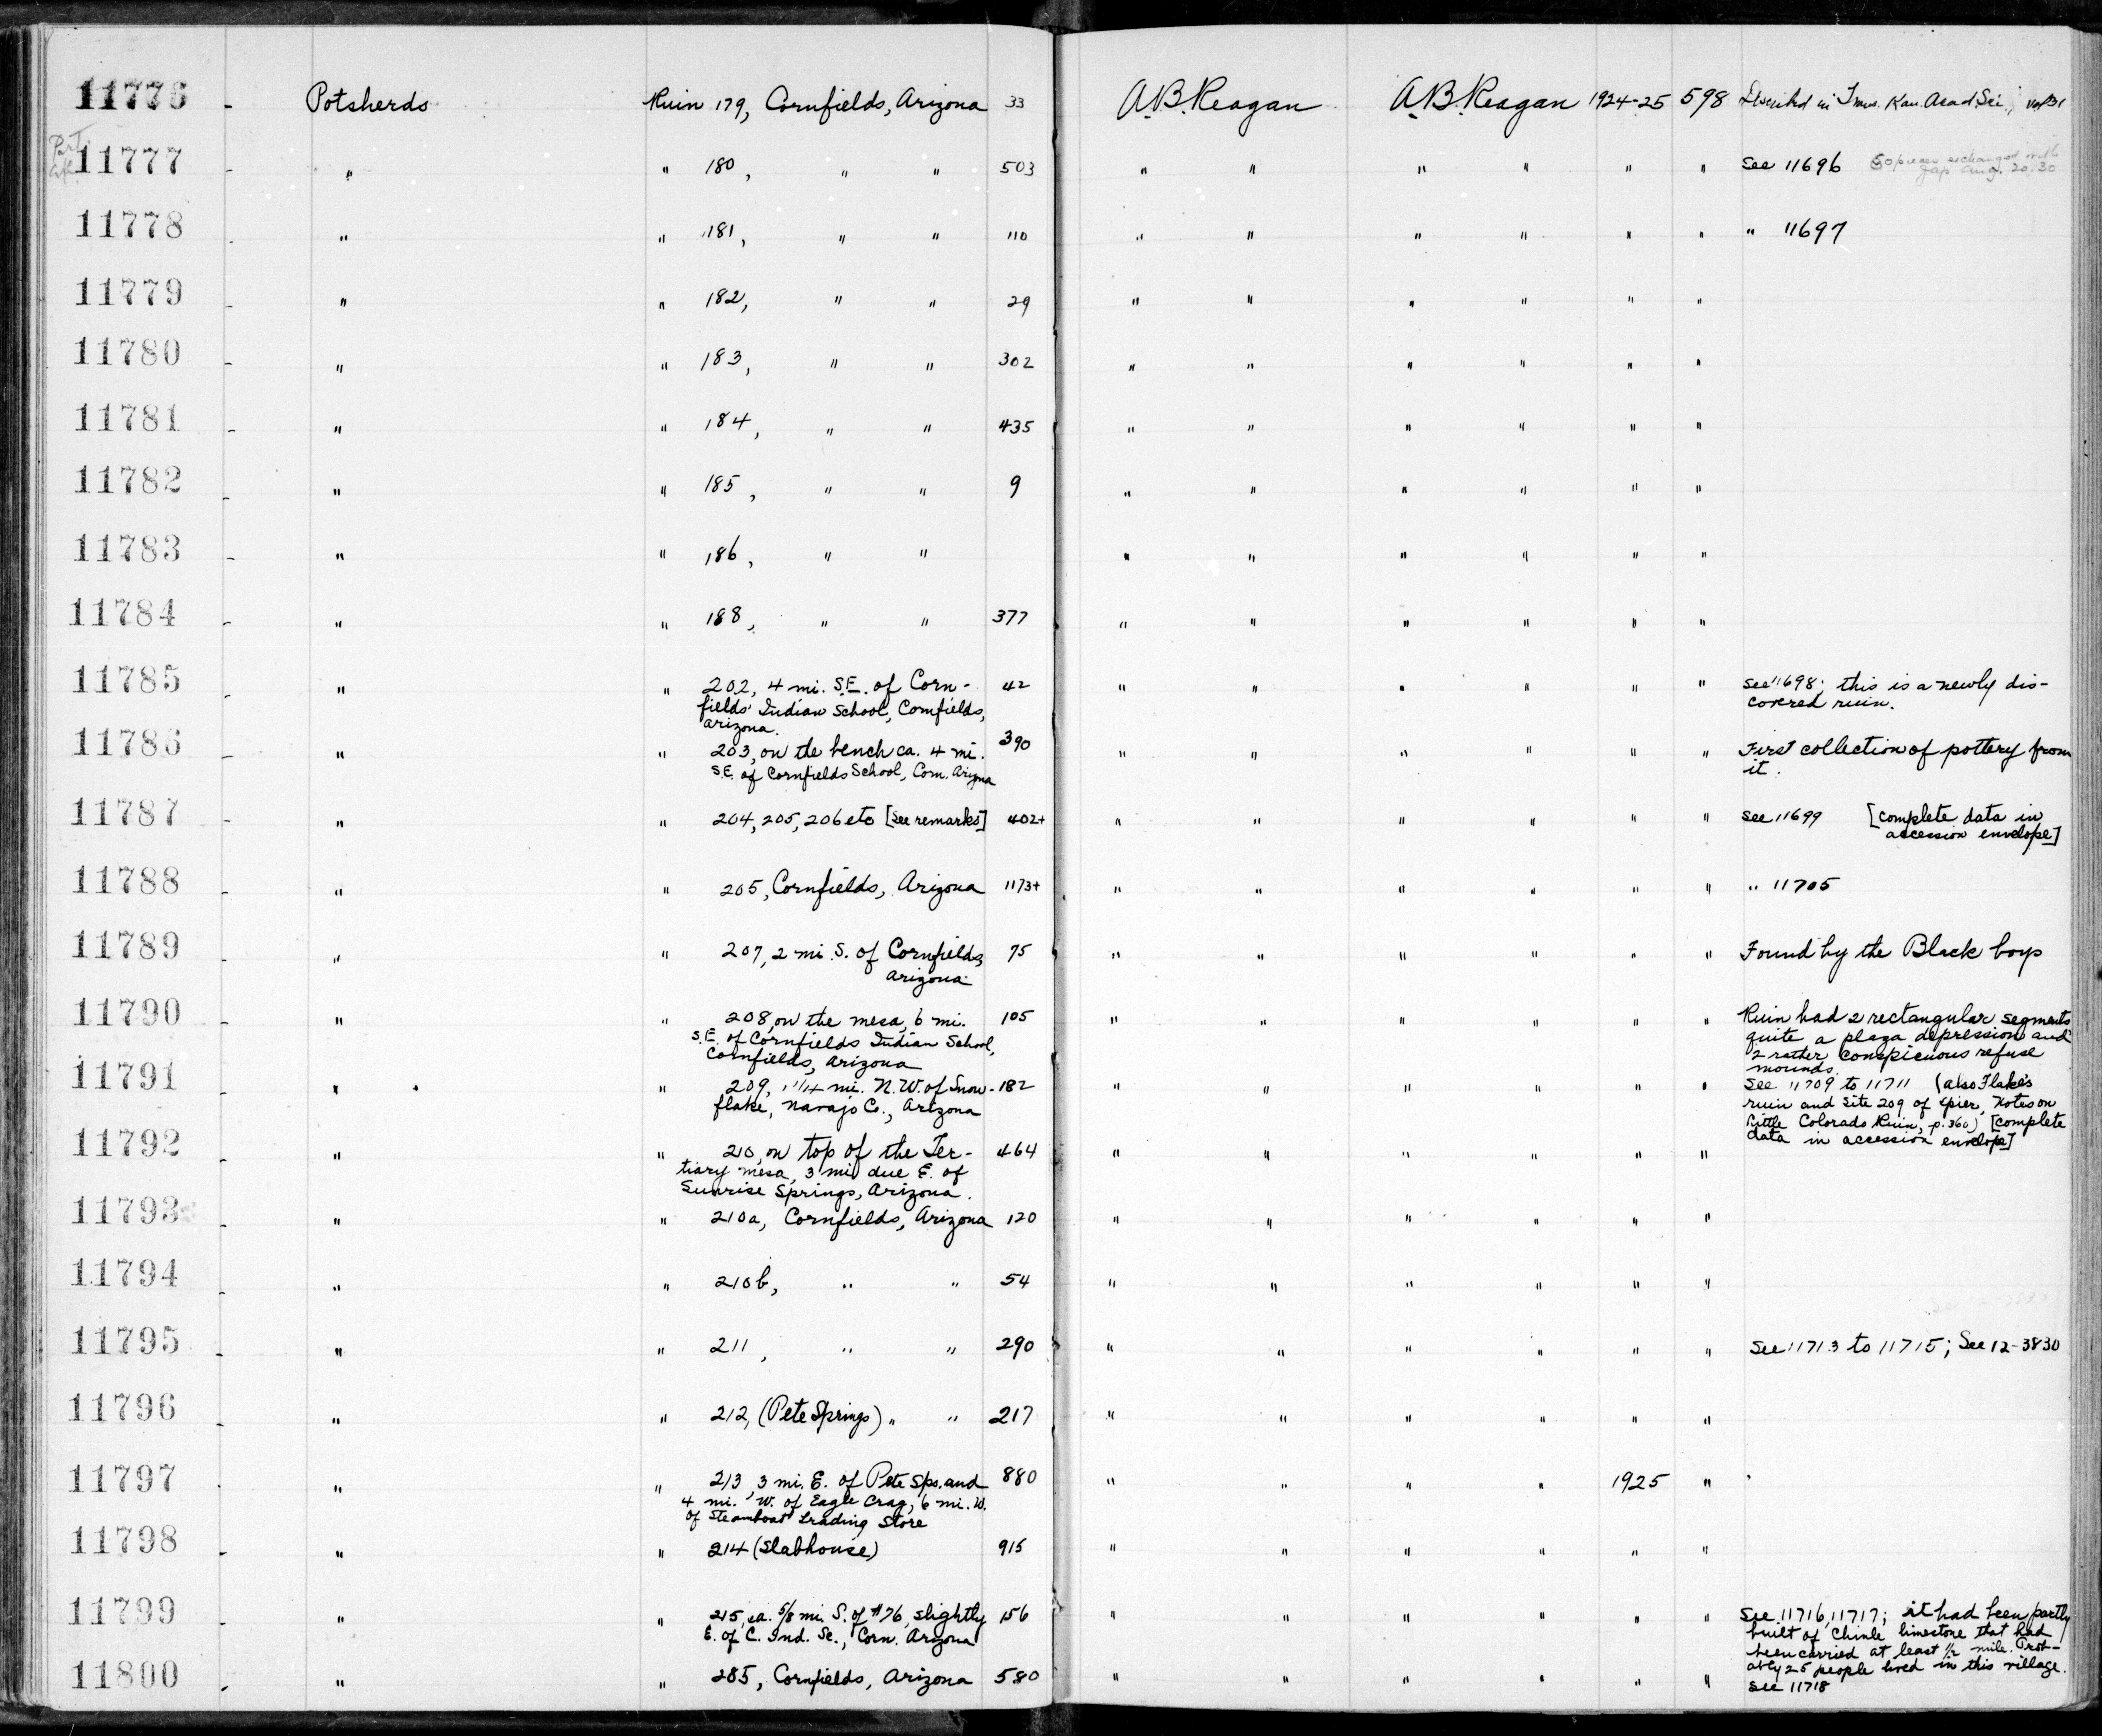 11776 - Potsherds Ruin 179, Cornfields, Arizona 33 A.B. Reagan A.B. Reagan 1924-25 598 Described in Trans. Kan. Acad. Sci., vol 31
Part
11777 - " " 180, " " 503 " " " " " " See 11696 50 pieces exchanged with
Jap Aug. 20, 30
11778 - " " 181, " " 110 " " " " " " " 11697
11779 - " " 182, " " 29 " " " " " "
11780 - " " 183, " " 302 " " " " " "
11781 - " " 184, " " 435 " " " " " "
11782 - " " 185, " " 9 " " " " " "
11783 - " " 186, " " " " " " " "
11784 - " " 188, " " 377 " " " " " "
11785 - " " 202, 4 mi. S.E. of Corn- 42 " " " " " " See 11698; this is a newly dis-
fields' Indian School, Cornfields, covered ruin.
Arizona.
11786 - " " 203, on the bench ca. 4 mi. 390 " " " " " " First collection of pottery from
S.E. of Cornfields School, Corn. Arizona it.
11787 - " " 204, 205, 206 etc [see remarks] 402+ " " " " " " See 11699 [complete data in
accession envelope]
11788 - " " 205, Cornfields, Arizona 1173+ " " " " " " " 11705
11789 - " " 207, 2 mi. S. of Cornfields, 75 " " " " " " Found by the Black boys
Arizona
11790 - " " 208, on the mesa, 6 mi. 105 " " " " " " Ruin had 2 rectangular segments
S.E. of Cornfields Indian School, quite a plaza depression and
Cornfields, Arizona 2 rather conspicuous refuse
mounds.
11791 - " " 209, 1 1/4 mi. N.W. of Snow- 182 " " " " " " See 11709 to 11711 (also Flake's
flake, Navajo Co., Arizona ruin and Site 209 of Spier, Notes on
Little Colorado Ruin, p. 360) [complete
data in accession envelope]
11792 - " " 210, on top of the Ter- 464 " " " " " "
tiary mesa, 3 mi due E. of
Sunrise Springs, Arizona.
11793 - " " 210a, Cornfields, Arizona 120 " " " " " "
11794 - " " 210b, " " 54 " " " " " "
11795 - " " 211, " " 290 " " " " " " See 11713 to 11715; See 12-3830
11796 - " " 212, (Pete Springs) " " 217 " " " " " "
11797 - " " 213, 3 mi. E. of Pete Sps. and 880 " " " " 1925 "
4 mi. W. of Eagle Crag, 6 mi. W.
of Steamboat Trading Store
11798 - " " 214 (Slabhouse) 915 " " " " " "
11799 - " " 215, ca. 5/8 mi. S. of #76, slightly 156 " " " " " " See 11716, 11717; it had been partly
E. of C. Ind. Sc., Corn. Arizona built of Chinle limestone that had
been carried at least 1/2 mile. Prob-
ably 25 people lived in this village.
11800 - " " 285, Cornfields, Arizona 580 " " " " " " See 11718